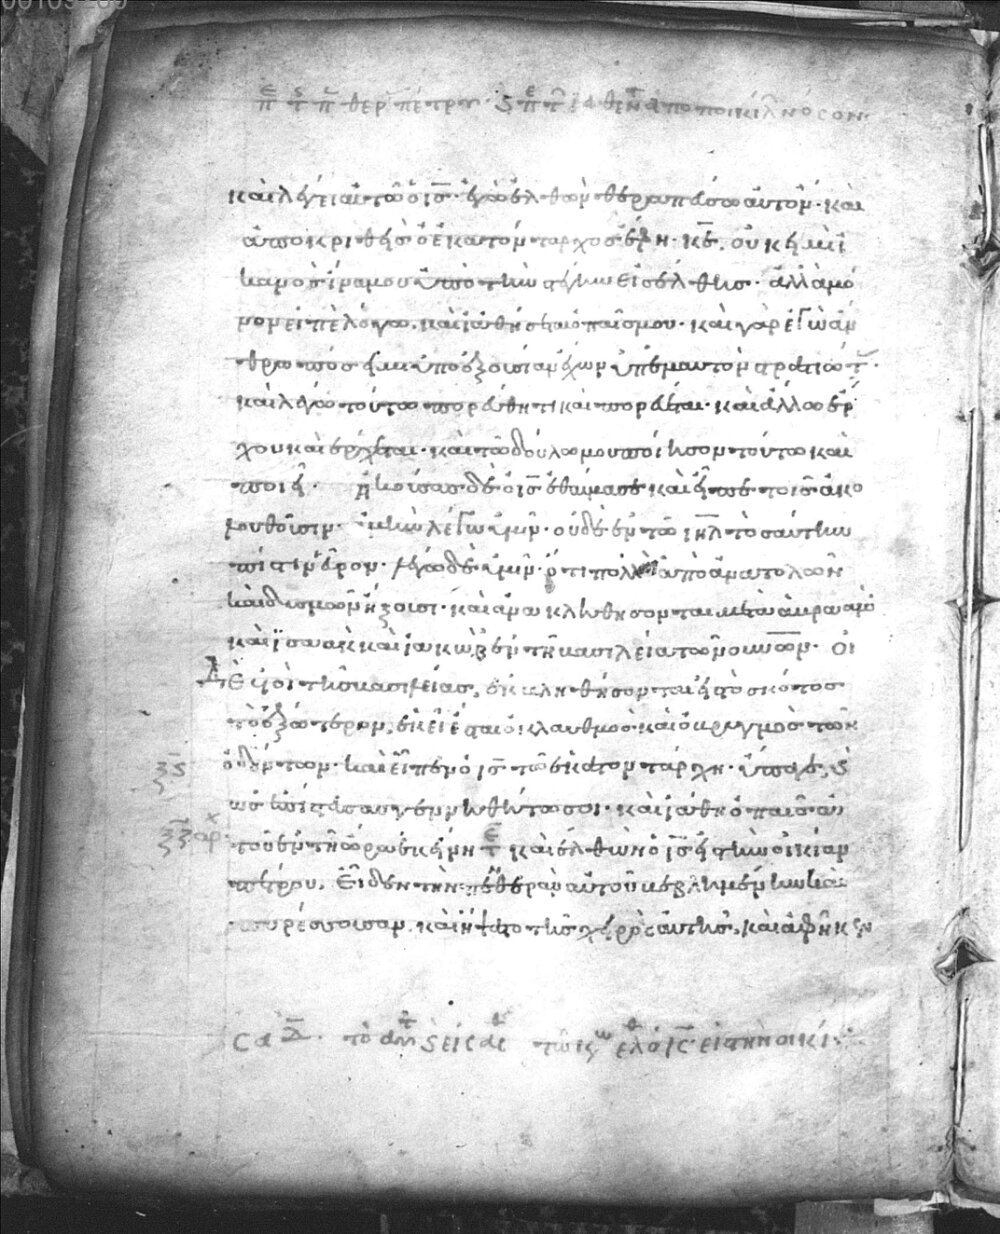 καὶ λέγει αὐτῶ ὁ ις· ἐγὼ ἐλθὼν θεραπεύσω αὐτόν· καὶ
ἀποκριθεὶς ὁ ἑκατόνταρχος ἔφη· κε, οὐκ εἰμὶ
ἱκανὸς ἵνα μου ὑπὸ τὴν στέγην εἰσέλθης· ἀλλὰ μό
νον εἰπὲ λόγω, καὶ ἰαθήσεται ὁ παῖς μου· καὶ γὰρ ἐγὼ ἄν
θρωπός εἰμι ὑπὸ ἐξουσίαν ἔχων ὑπ' ἐμαυτὸν στρατιώτ
καὶ λέγω τούτω πορεύθητι καὶ πορεύεται· καὶ ἄλλω ἔρ
χου καὶ ἔρχεται· καὶ τῶ δούλω μου ποίησον τοῦτο καὶ
ποιεῖ· ἀκούσας δὲ ὁ ις ἐθαύμασε καὶ εἶπε τοῖς ἀκο
λουθοῦσιν· ἀμὴν λέγω ὑμῖν· οὐδὲ ἐν τῶ ιηλ τοσαύτην
πίστιν εὗρον· λέγω δὲ ὑμῖν· ὅτι πολλοὶ ἀπὸ ἀνατολῶν
καὶ δυσμῶν ἥξουσι· καὶ ἀνακληθήσονται μετὰ ἀβραὰμ
καὶ ἰσαὰκ καὶ ἰακὼβ ἐν τῆ βασιλεία τῶν οὐνῶν· οἱ
δὲ υἱοὶ τῆς βασιλείας, ἐκβληθήσονται εἰς τὸ σκότος
τὸ ἐξώτερον, ἐκεῖ ἔσται ὁ κλαυθμὸς καὶ ὁ βρυγμὸς τῶν
ὀδόντων· καὶ εἶπεν ὁ ις τῶ ἑκατοντάρχη· ὕπαγε,
ὡς ἐπίστευσας γενηθήτω σοι· καὶ ἰάθη ὁ παῖς αὐ
τοῦ ἐν τῆ ὥρα ἐκείνη καὶ ἐλθὼν ὁ ις εἰς τὴν οἰκίαν
πέτρου, εἶδεν τὴν πενθερὰν αὐτοῦ βεβλημένην καὶ
πυρέσσουσαν, καὶ ἥψατο τῆς χειρὸς αὐτῆς, καὶ ἀφῆκεν